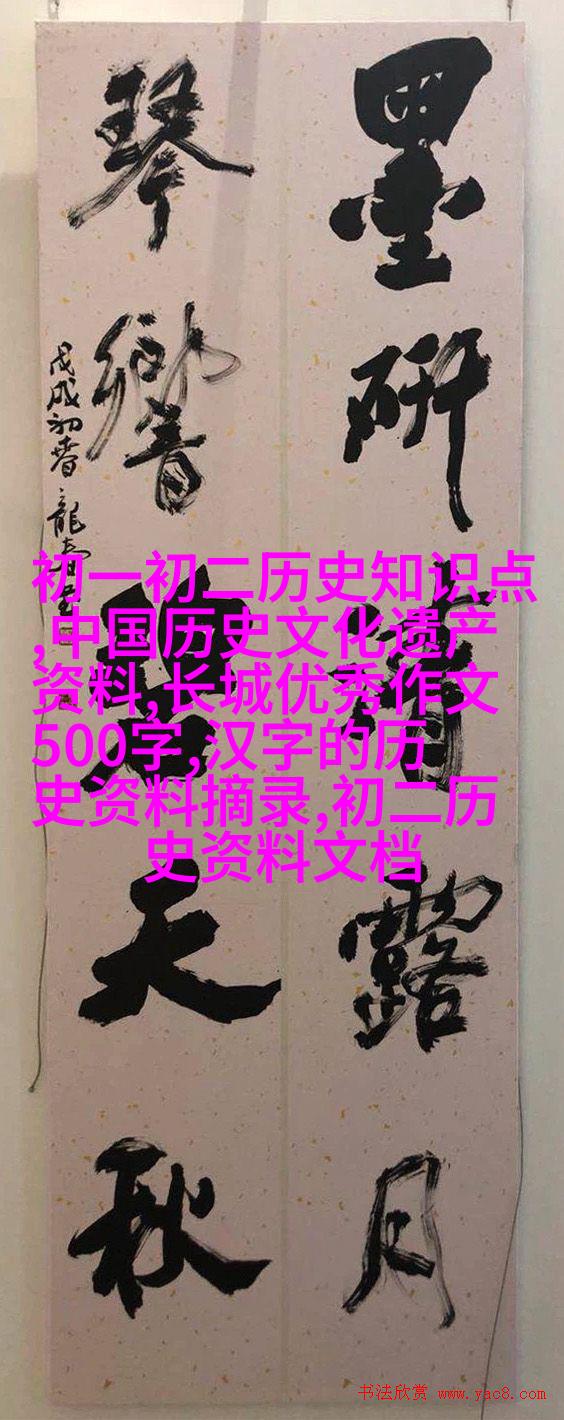 墨研清露月
琴響碧天秋
戊戌初春 龍
初一初二历史知识点
,中国历史文化遗产
资料,长城优秀作文
500字,汉字的历
史资料摘录,初二历
史资料文档
书法欣赏 www.yac8.com